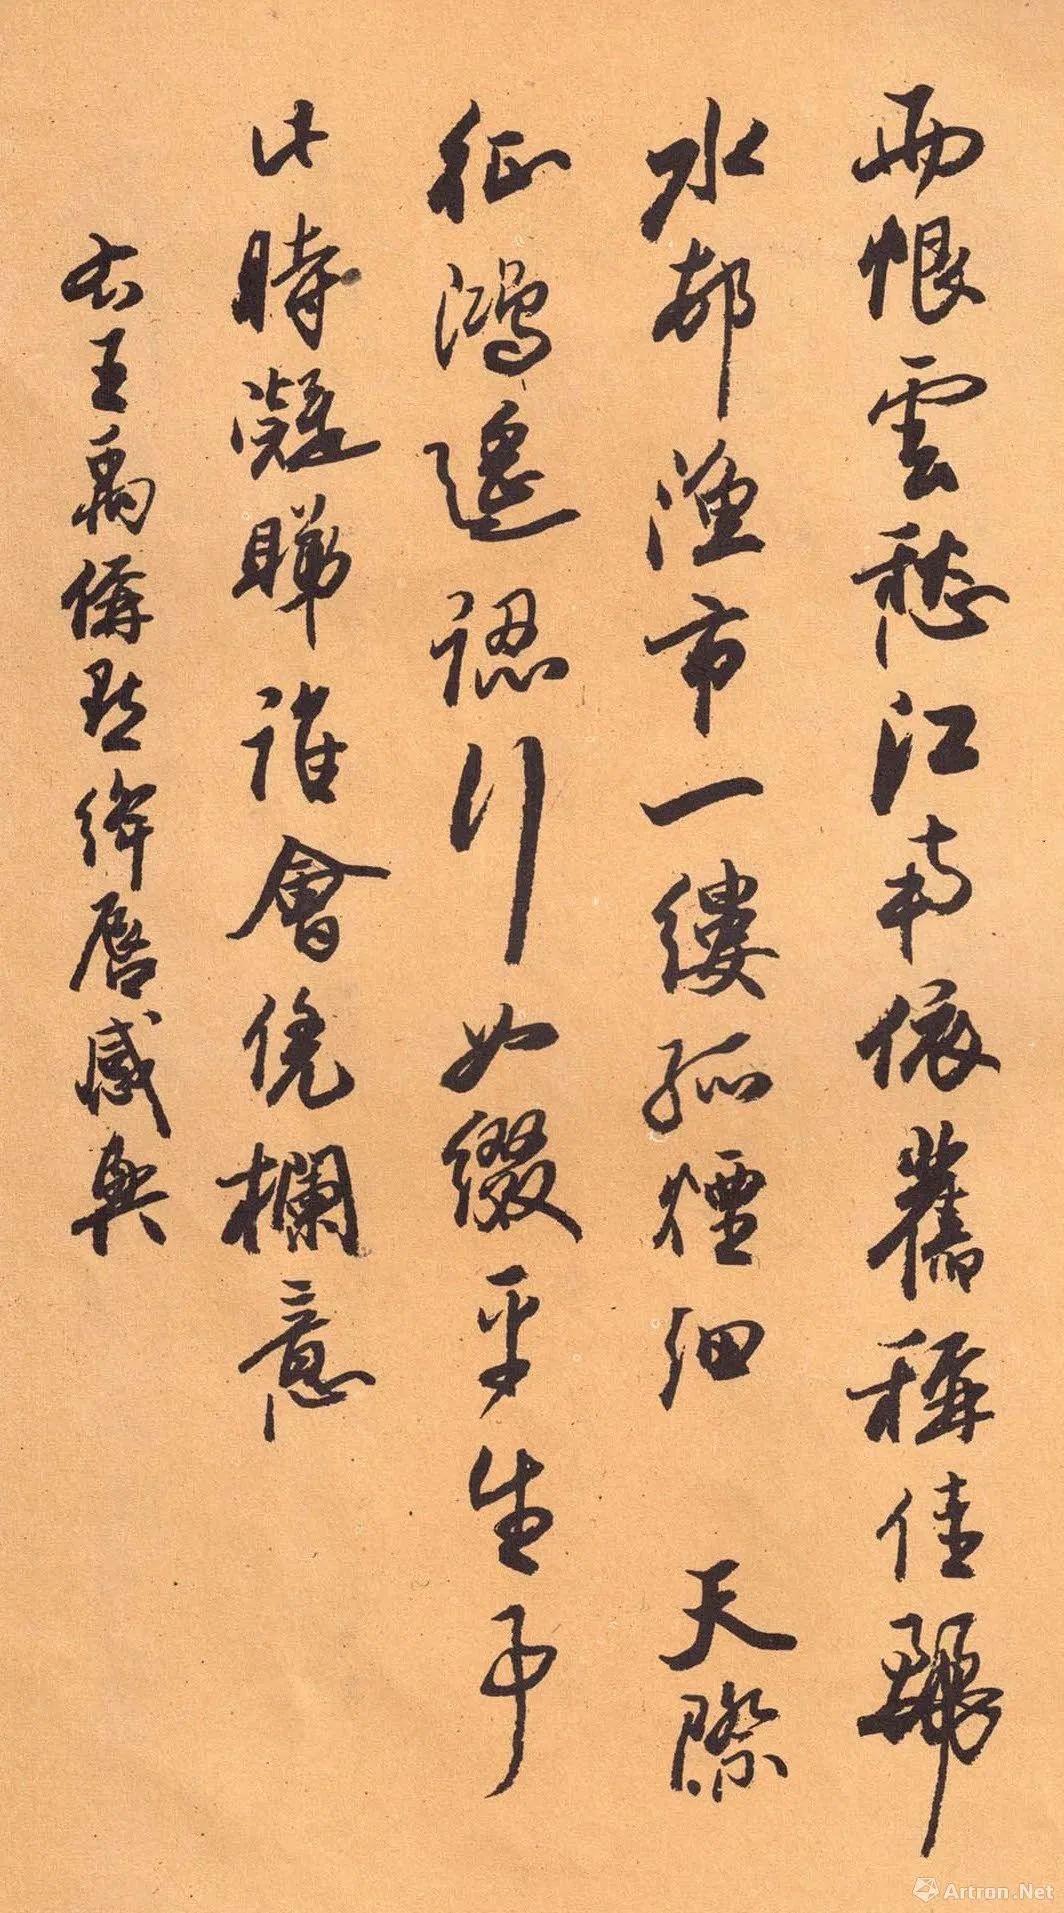 雨恨雲愁江南依舊稱佳麗
水邨漁市一縷孤煙細 天際
征鴻遙認行如綴平生事
此時凝睇誰會凭欄意
右王禹偁點絳唇感興
Artron.Net